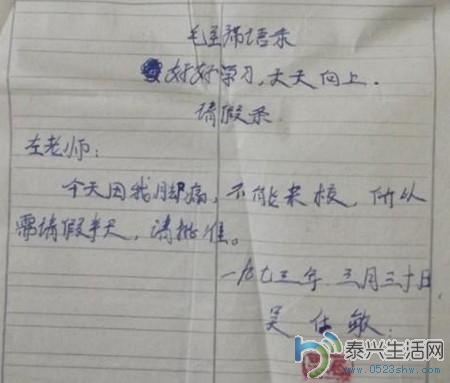 毛主席语录
好好学习,天天向上.
请假条
左老师:
今天因我脚痛,不能来校,所以
需请假半天,请批准。
一九七三年 三月三十日
吴仕敏
泰兴生活网
www.0523shw.com